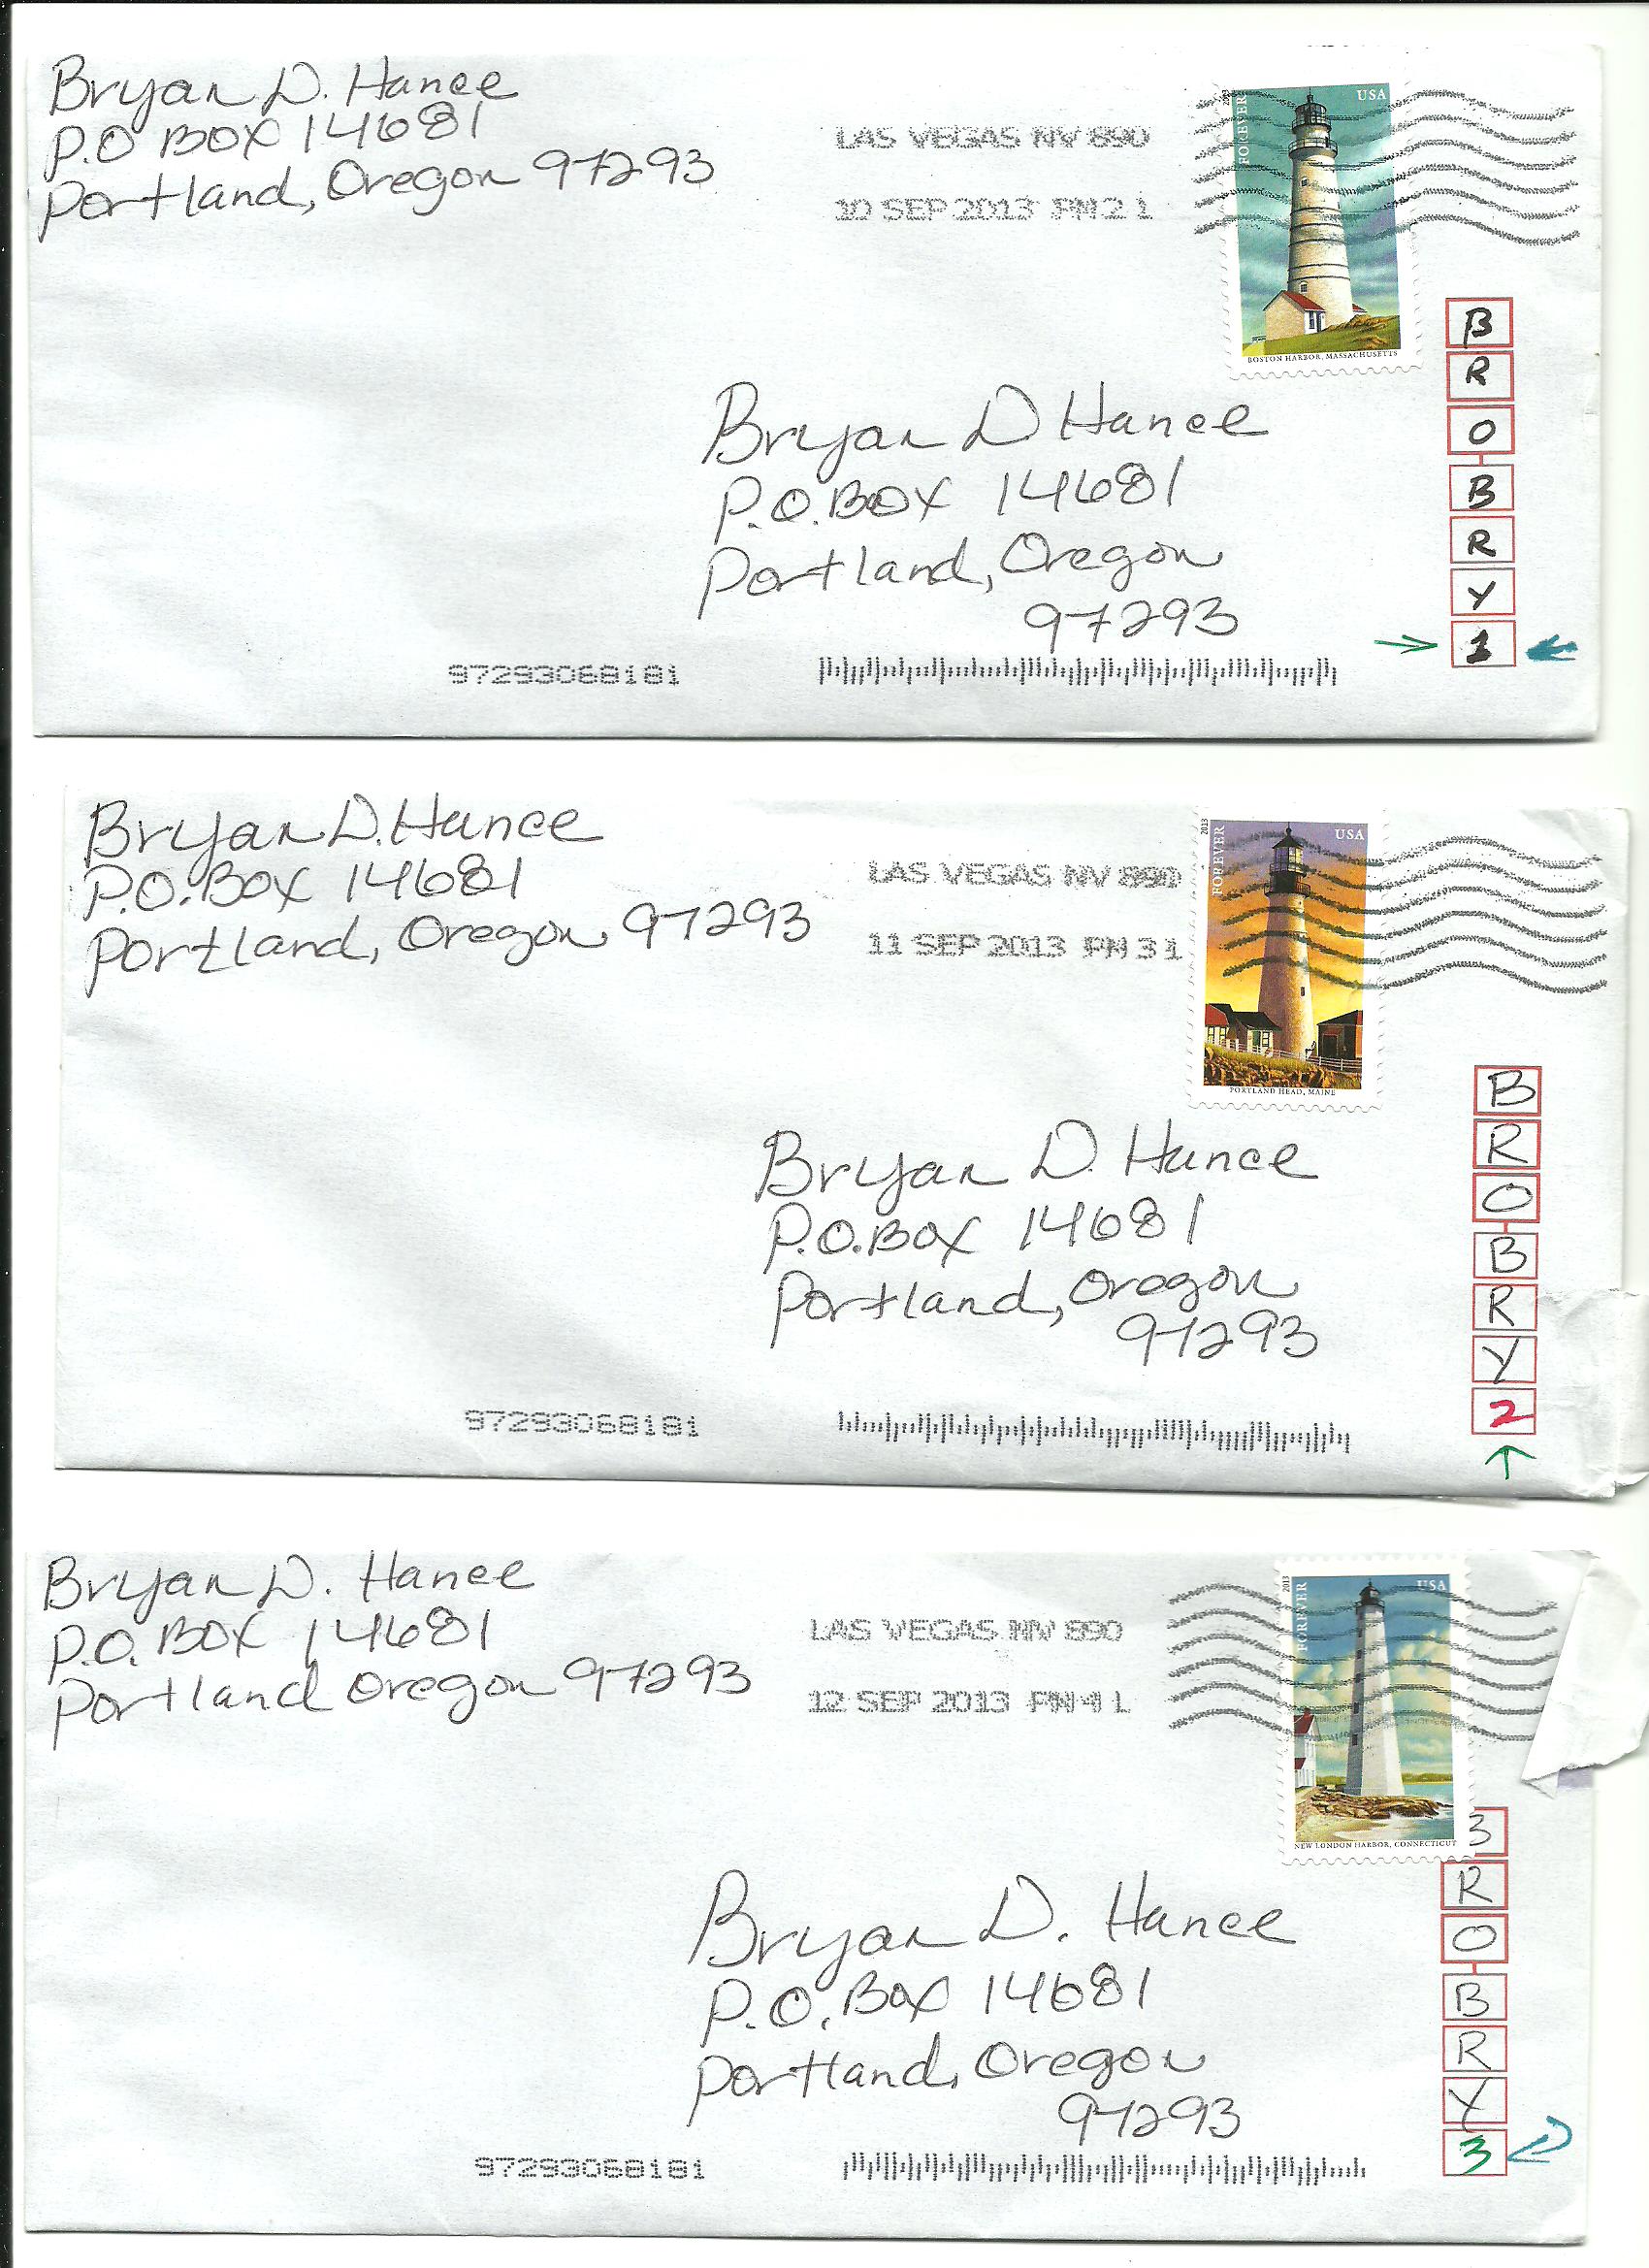 Bryan D. Hance
P.O BOX 14681
Portland, Oregon 97293
LAS VEGAS NV 890
10 SEP 2013 PM 2 L
2013
FOREVER
USA
BOSTON HARBOR, MASSACHUSETTS
Bryan D Hance
P.O. BOX 14681
Portland, Oregon
97293
B
R
O
B
R
Y
1
97293068181
Bryan D. Hance
P.O. BOX 14681
Portland, Oregon 97293
LAS VEGAS NV 890
11 SEP 2013 PM 3 L
2013
FOREVER
USA
PORTLAND HEAD, MAINE
Bryan D. Hance
P.O. BOX 14681
Portland, Oregon
97293
B
R
O
B
R
Y
2
97293068181
Bryan D. Hance
P.O. BOX 14681
Portland Oregon 97293
LAS VEGAS NV 890
12 SEP 2013 PM 4 L
2013
FOREVER
USA
NEW LONDON HARBOR, CONNECTICUT
Bryan D. Hance
P.O. Box 14681
Portland, Oregon
97293
B
R
O
B
R
Y
3
97293068181